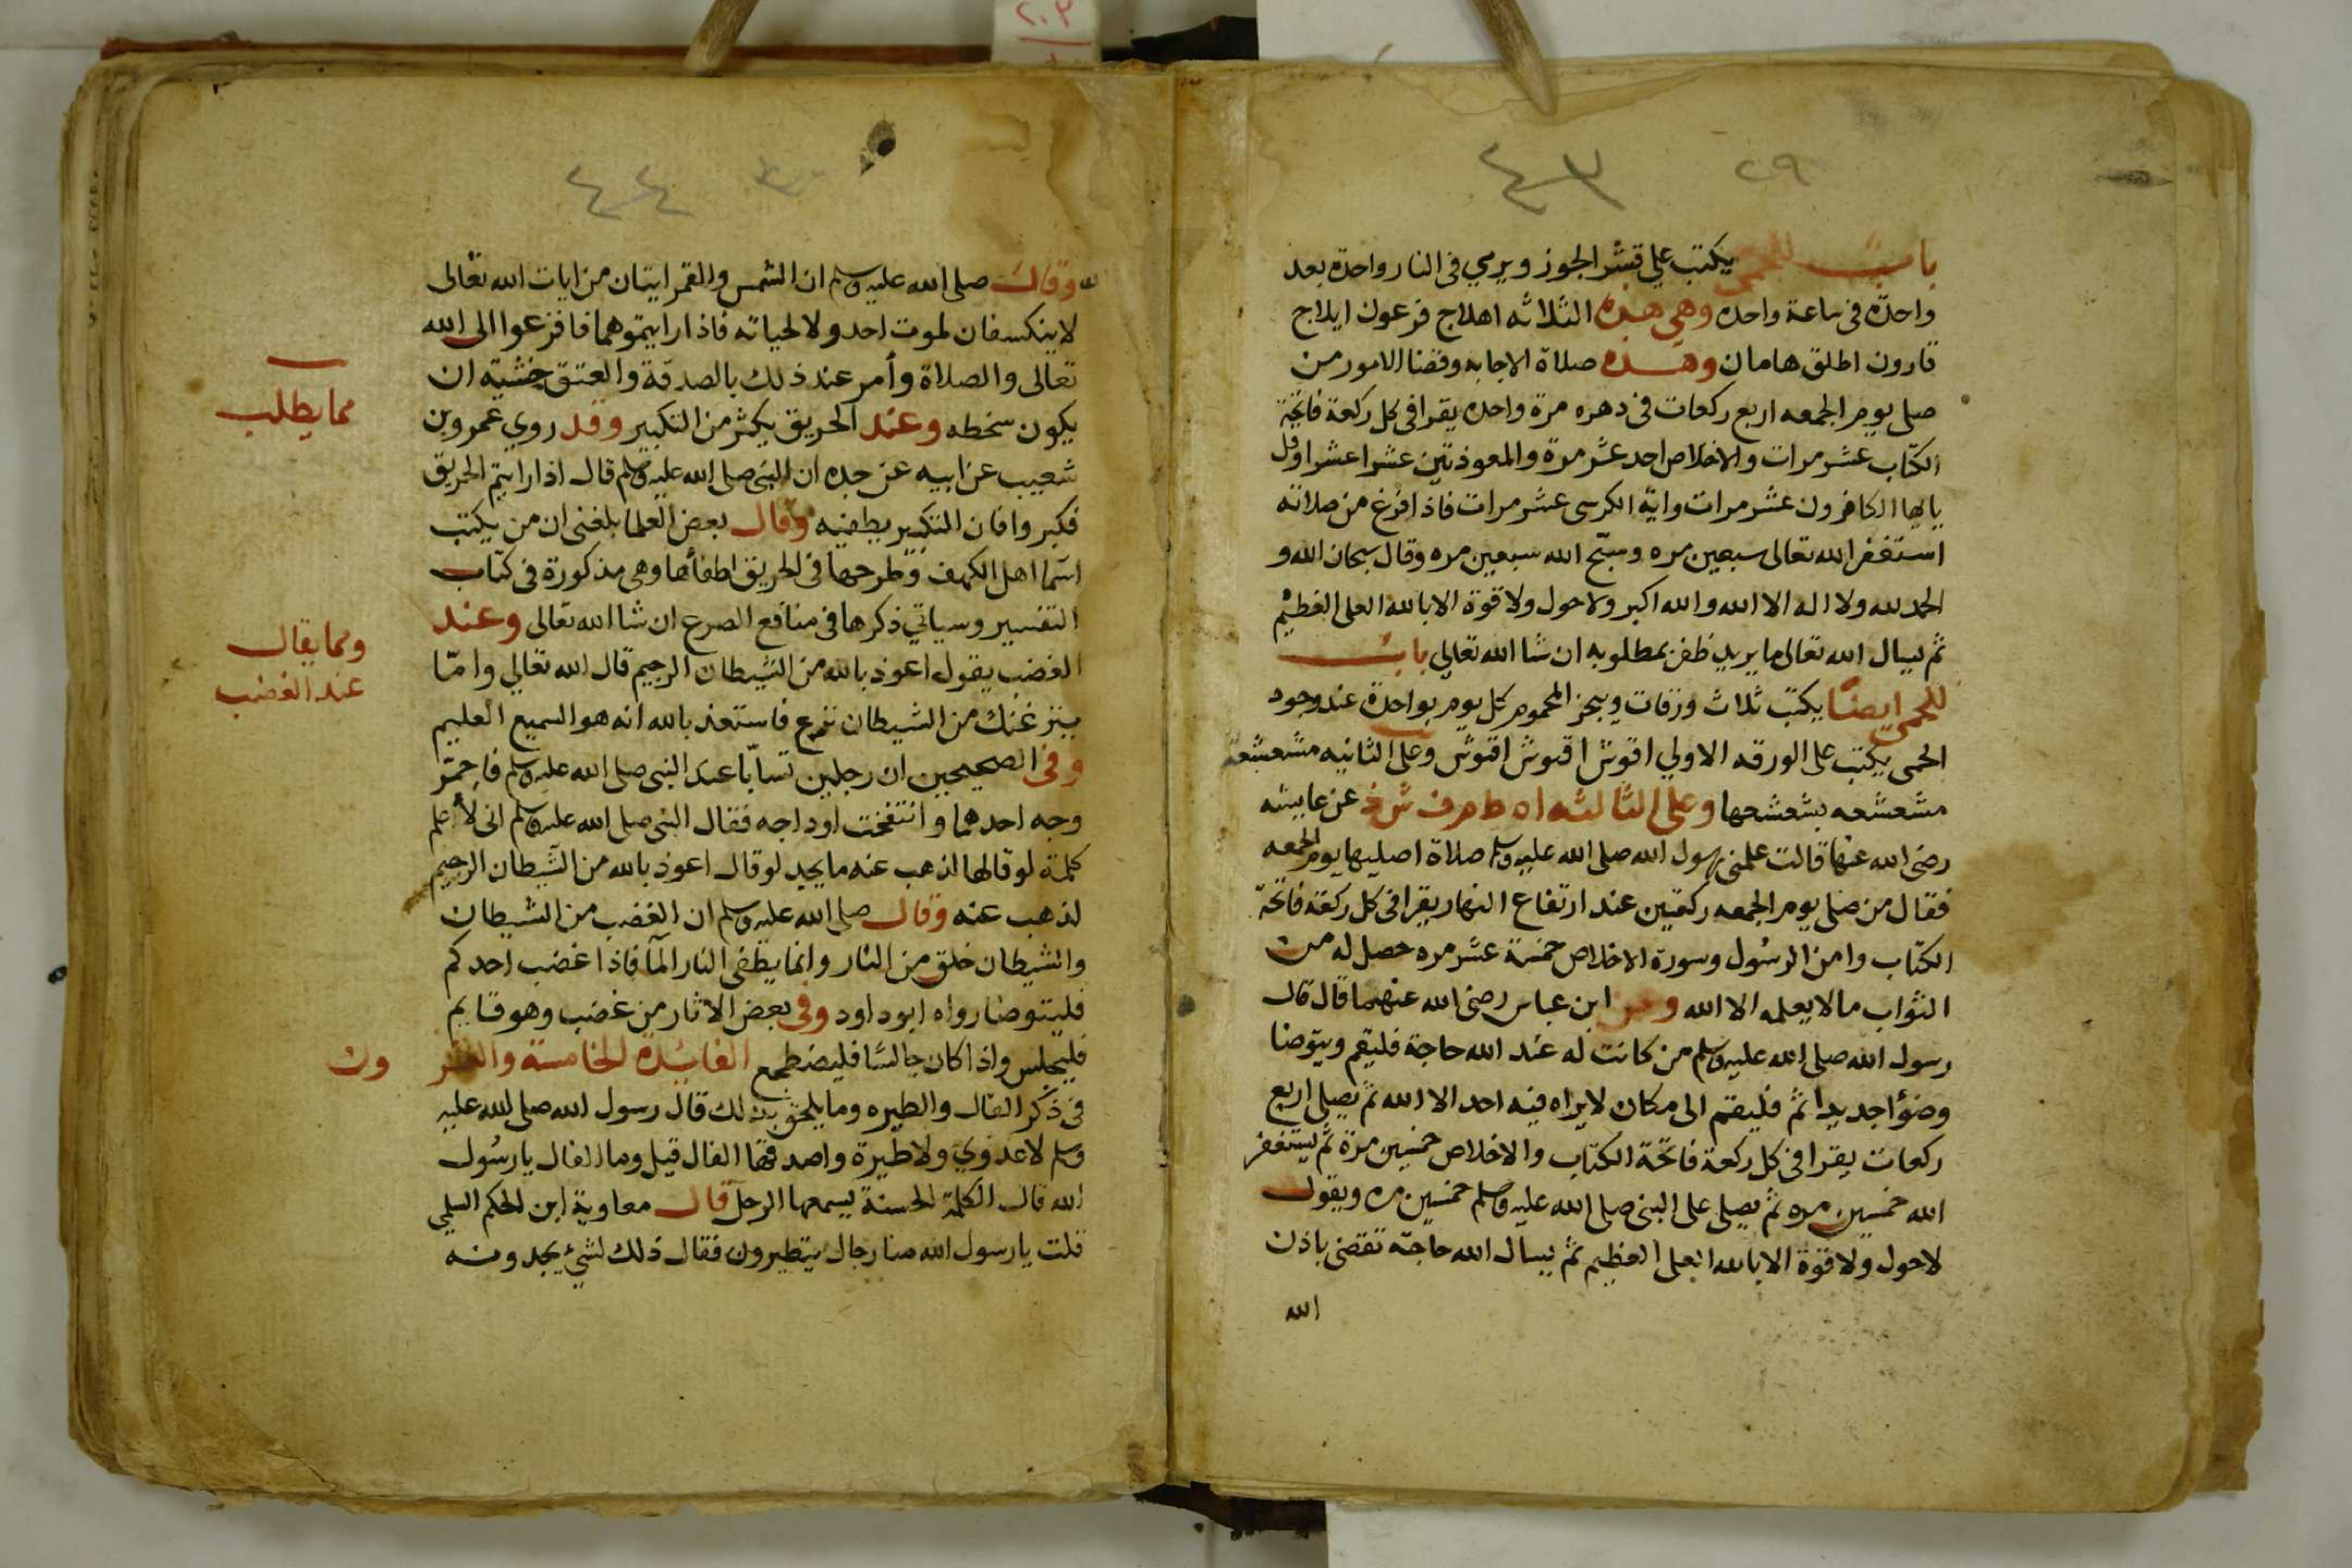 ٢٩
٤٣
باب للحمى يكتب على قشر الجوز ويرمي في النار واحدة بعد
واحدة في ساعة واحده وهي هذه الثلاثه اهلاج فرعون ايلاج
قارون اطلق هامان وهذه صلاة الاجابه وقضا الامور من
صلى يوم الجمعه اربع ركعات في دهره مرة واحده يقرا في كل ركعة فاتحة
الكتاب عشر مرات والاخلاص احد عشر مرة والمعوذتين عشرا عشرا وقل
يايها الكافرون عشر مرات واية الكرسى عشر مرات فاذا فرغ من صلاته
استغفر الله تعالى سبعين مره وسبّح الله سبعين مره وقال سبحان الله و
الحمد لله ولا اله الا الله والله اكبر ولا حول ولا قوة الا بالله العلى العظيم
ثم يسال الله تعالى ما يريد ظفر بمطلوبه ان شا الله تعالي باب
للحمى ايضًا يكتب ثلاث ورقات ويبخر المحموم كل يوم بواحدة عند وجود
الحمى يكتب على الورقه الاولي اقوش اقوش اقوش وعلى الثانيه مشعشعة
مشعشعه بشعشعها وعلى الثالثه عن عايشه
رضى الله عنها قالت علمنى رسول الله صلى الله عليه وسلم صلاة اصليها يوم الجمعه
فقال من صلى يوم الجمعه ركعتين عند ارتفاع النهار يقرا في كل ركعة فاتحة
الكتاب وامن الرسُول وسورة الاخلاص خمسة عشر مره حصل له من
الثواب ما لا يعلمه الا الله وعن ابن عباس رضى الله عنهما قال قال
رسول الله صلى الله عليه وسلم من كانت له عند الله حاجة فليقم ويتوضا
وضوًا جديدا ثم فليقم الى مكان لا يراه فيه احد الا الله ثم يصلى اربع
ركعات يقرا في كل ركعة فاتحة الكتاب والاخلاص خمسين مرة ثم يستغفر
الله خمسين مره ثم يصلى على النبى صلى الله عليه وسلم خمسين مره ويقول
لا حول ولا قوة الا بالله العلى العظيم ثم يسال الله حاجته تقضى باذن
الله
٤٤
وقالت صلى الله عليه وسلم ان الشمس والقمر ايتان من ايات الله تعالى
لا ينكسفان لموت احد ولا لحياته فاذا رايتموهما فافزعوا الى الله
تعالى والصلاة وأمر عند ذلك بالصدقة والعتق خشية ان
يكون سخطه وعند الحريق يكثر من التكبير وقد روي عمرو بن
شعيب عن ابيه عن جده ان النبى صلى الله عليه وسلم قال اذا رايتم الحريق
فكبروا فان التكبير يطفيه وقال بعض العلما بلغنى ان من يكتب
اسما اهل الكهف وطرحها فى الحريق اطفأها وهى مذكورة فى كتاب
التفسير وسياتي ذكرها فى منافع الصرع ان شا الله تعالى وعند
الغضب يقول اعوذ بالله من الشيطان الرجيم قال الله تعالي وامّا
ينزغنك من الشيطان نزغ فاستعذ بالله انه هو السميع العليم
وفى الصحيحين ان رجلين تسابّا عند النبى صلى الله عليه وسلم فاحمرّ
وجه احدهما وانتفخت اوداجه فقال النبى صلى الله عليه وسلم انى لأعلم
كلمة لو قالها لذهب عنه ما يجد لو قال اعوذ بالله من الشيطان الرجيم
لذهب عنه وقال صلى الله عليه وسلم ان الغضب من الشيطان
والشيطان خلق من النار وانما يطفى النار المآ فاذا غضب احدكم
فليتوضا رواه ابو داود وفى بعض الاثار من غضب وهو قايم
فليجلس واذا كان جالسًا فليضطجع الفائدة الخامسة والعشر ون
فى ذكر الفال والطيره وما يلحق بذلك قال رسول الله صلى الله عليه
وسلم لا عدوي ولا طيرة واصدقها الفال قيل وما الفال يا رسُول
الله قال الكلمة الحسنة يسمعها الرجل قال معاوية ابن الحكم السلمي
قلت يا رسول الله منا رجال يتطيرون فقال ذلك لشئ يجدونه
مما يطلب
ومما يقال
عند الغضب